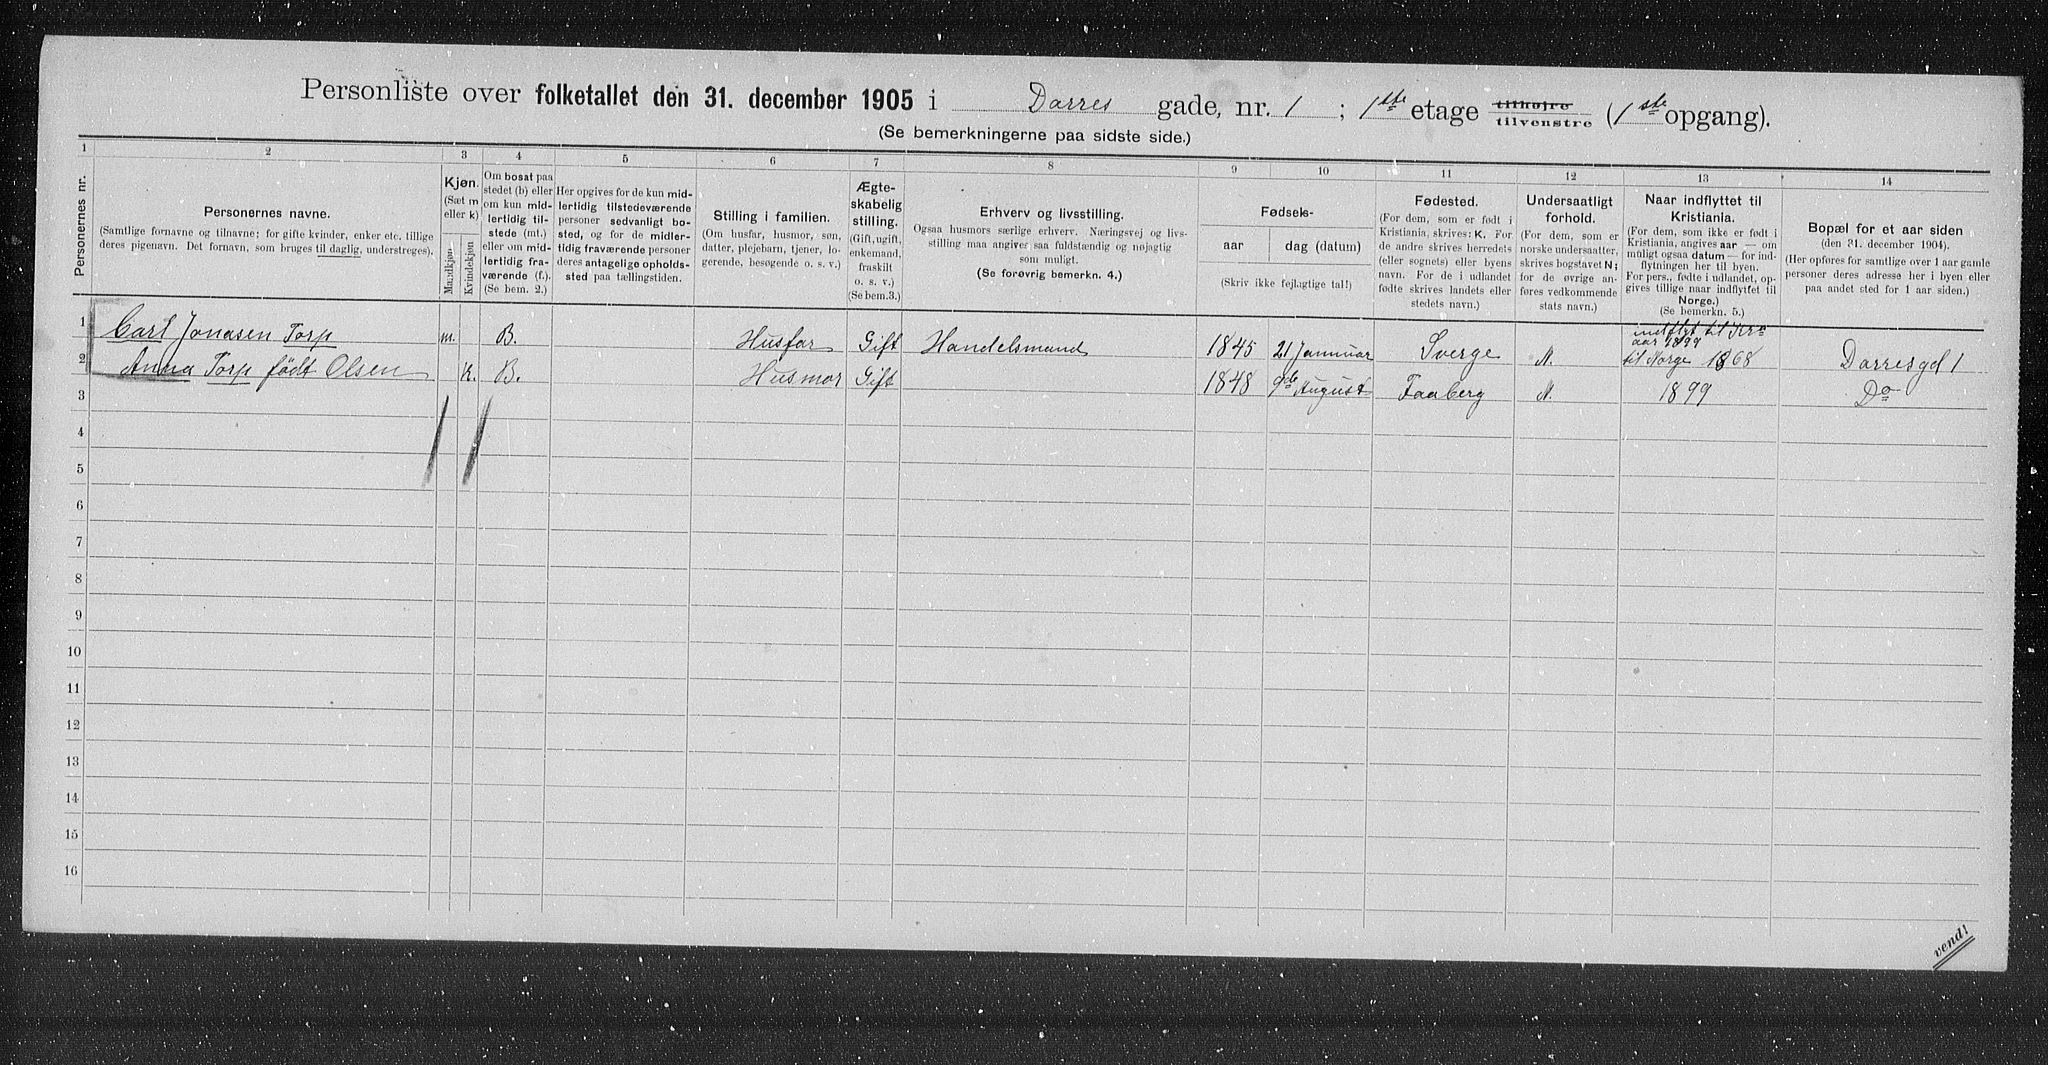 Personliste over folketallet den 31. december 1905 i Darres gade, nr. 1 ; 1ste etage tilhøjre tilvenstre (1ste opgang).
(Se bemerkningerne paa sidste side.)
1 2 3 4 5 6 7 8 9 10 11 12 13 14
Personernes nr.
Personernes navne.
(Samtlige fornavne og tilnavne; for gifte kvinder, enker etc. tillige
deres pigenavn. Det fornavn, som bruges til daglig, understreges).
Kjøn.
(Sæt m
eller k)
Mandkjøn
Kvindekjøn
Om bosat paa
stedet (b) eller
om kun mid-
lertidig til-
stede (mt.)
eller om mid-
lertidig fra-
værende (f.).
(Se bem. 2.)
Her opgives for de kun mid-
lertidig tilstedeværende
personer sedvanligt bo-
sted, og for de midler-
tidig fraværende personer
deres antagelige opholds-
sted paa tællingstiden.
Stilling i familien.
(Om husfar, husmor, søn,
datter, plejebarn, tjener, lo-
gerende, besøgende o. s. v.)
Ægte-
skabelig
stilling.
(Gift, ugift,
enkemand,
fraskilt
o. s. v.)
(Se bem. 3.)
Erhverv og livsstilling.
Ogsaa husmors særlige erhverv. Næringsvej og livs-
stilling maa angives saa fuldstændig og nøjagtig
som muligt.
(Se forøvrig bemerkn. 4.)
Fødsels-
aar dag (datum)
(Skriv ikke fejlagtige tal!)
Fødested.
(For dem, som er født i
Kristiania, skrives: K. For
de andre skrives herredets
(eller sognets) eller byens
navn. For de i udlandet
fødte skrives landets eller
stedets navn.)
Undersaatligt
forhold.
(For dem, som er
norske undersaatter,
skrives bogstavet N;
for de øvrige an-
føres vedkommende
stats navn.)
Naar indflyttet til
Kristiania.
(For dem, som ikke er født i
Kristiania, angives aar — om
muligt ogsaa datum — for ind-
flytningen her til byen.
For pers., fødte i udlandet, op-
gives tillige naar indflyttet til
Norge.)
(Se bemerkn. 5.)
Bopæl for et aar siden
(den 31. december 1904).
(Her opføres for samtlige over 1 aar gamle
personer deres adresse her i byen eller
paa andet sted for 1 aar siden.)
1 Carl Jonasen Torp m. B. Husfar Gift Handelsmand 1845 21 Januar Sverge N. aar 1899
til Norge 1868 Darresgd 1
2 Anna Torp født Olsen k. B. Husmor Gift 1848 9de August Faaberg N. 1899 Do
3
4
5
6
7
8
9
10
11
12
13
14
15
16
vend!